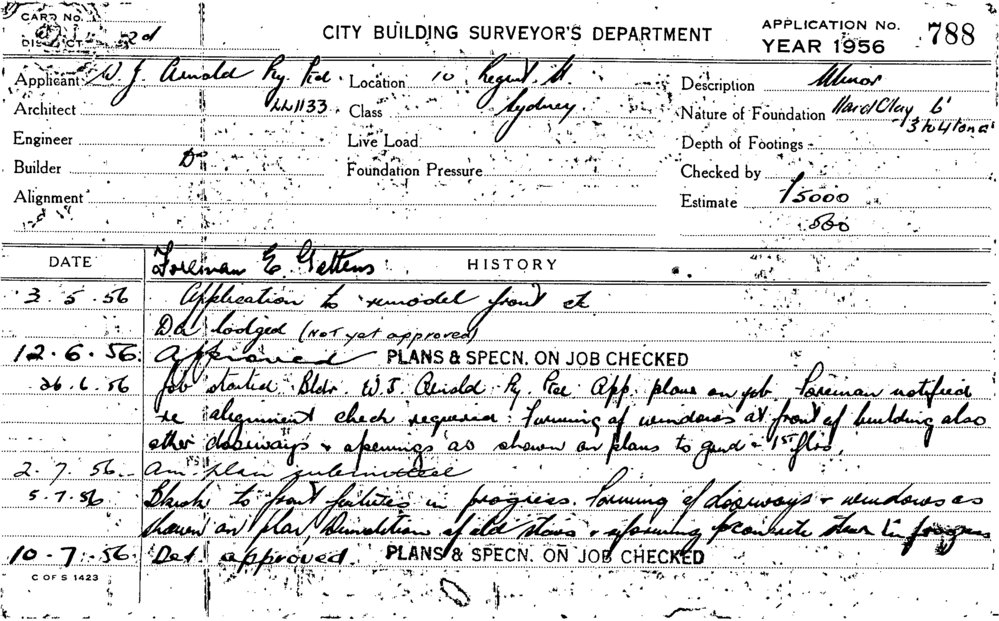 CARD No.
DISTRICT 2d
CITY BUILDING SURVEYOR'S DEPARTMENT
APPLICATION No. 788
YEAR 1956
Applicant W. J. Arnold Pty. Ltd. Location 10 Regent St Description Minor
Architect LL1133. Class Sydney Nature of Foundation Hard Clay 6'
3 to 4 ton
Engineer Live Load Depth of Footings
Builder Do Foundation Pressure Checked by
Alignment Estimate 15000
500
DATE Foreman E. Gattens HISTORY
3.5.56 Application to remodel front etc
Da lodged (NOT yet approved)
12.6.56. Approved PLANS & SPECN. ON JOB CHECKED
26.6.56 Job started Bldr. W J Arnold Pty. Ltd App. plans on job. Foreman notified
re alignment check required. Forming of windows at front of building also
other doorways & openings as shown on plans to grnd & 1st flrs.
2.7.56. Am. plan submitted
5.7.56 to front in progress. Forming of doorways & windows as
shown on plan, Demolition of old stairs & forming concrete in progress
10.7.56. Det. approved. PLANS & SPECN. ON JOB CHECKED
C OF S 1423